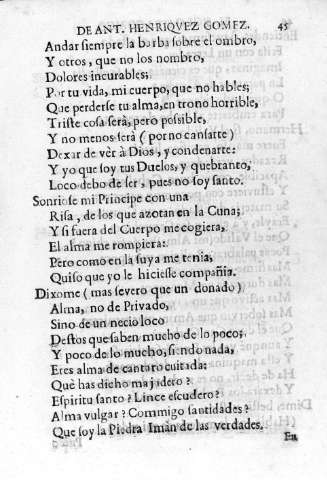 DE ANT. HENRIQVEZ GOMEZ. 45
Andar siempre la barba sobre el ombro,
Y otros, que no los nombro,
Dolores incurables;
Por tu vida, mi cuerpo, que no hables;
Que perderse tu alma, en trono horrible,
Triste cosa serà, pero possible,
Y no menos serà ( por no cansarte )
Dexar de vèr à Dios, y condenarte:
Y yo que soy tus Duelos, y quebranto,
Loco debo de ser, pues no soy santo.
Sonriose mi Principe con una
Risa, de los que azotan en la Cuna;
Y si fuera del Cuerpo me cogiera,
El alma me rompiera:
Pero como en la suya me tenia,
Quiso que yo le hiciesse compañia.
Dixome ( mas severo que un donado )
Alma, no de Privado,
Sino de un necio loco
Destos que saben mucho de lo poco;
Y poco de lo mucho, siendo nada,
Eres alma de cantaro cuitada:
Què has dicho majadero?
Espiritu santo? Lince escudero?
Alma vulgar? Commigo santidades?
Que soy la Piedra Imàn de las verdades.
En